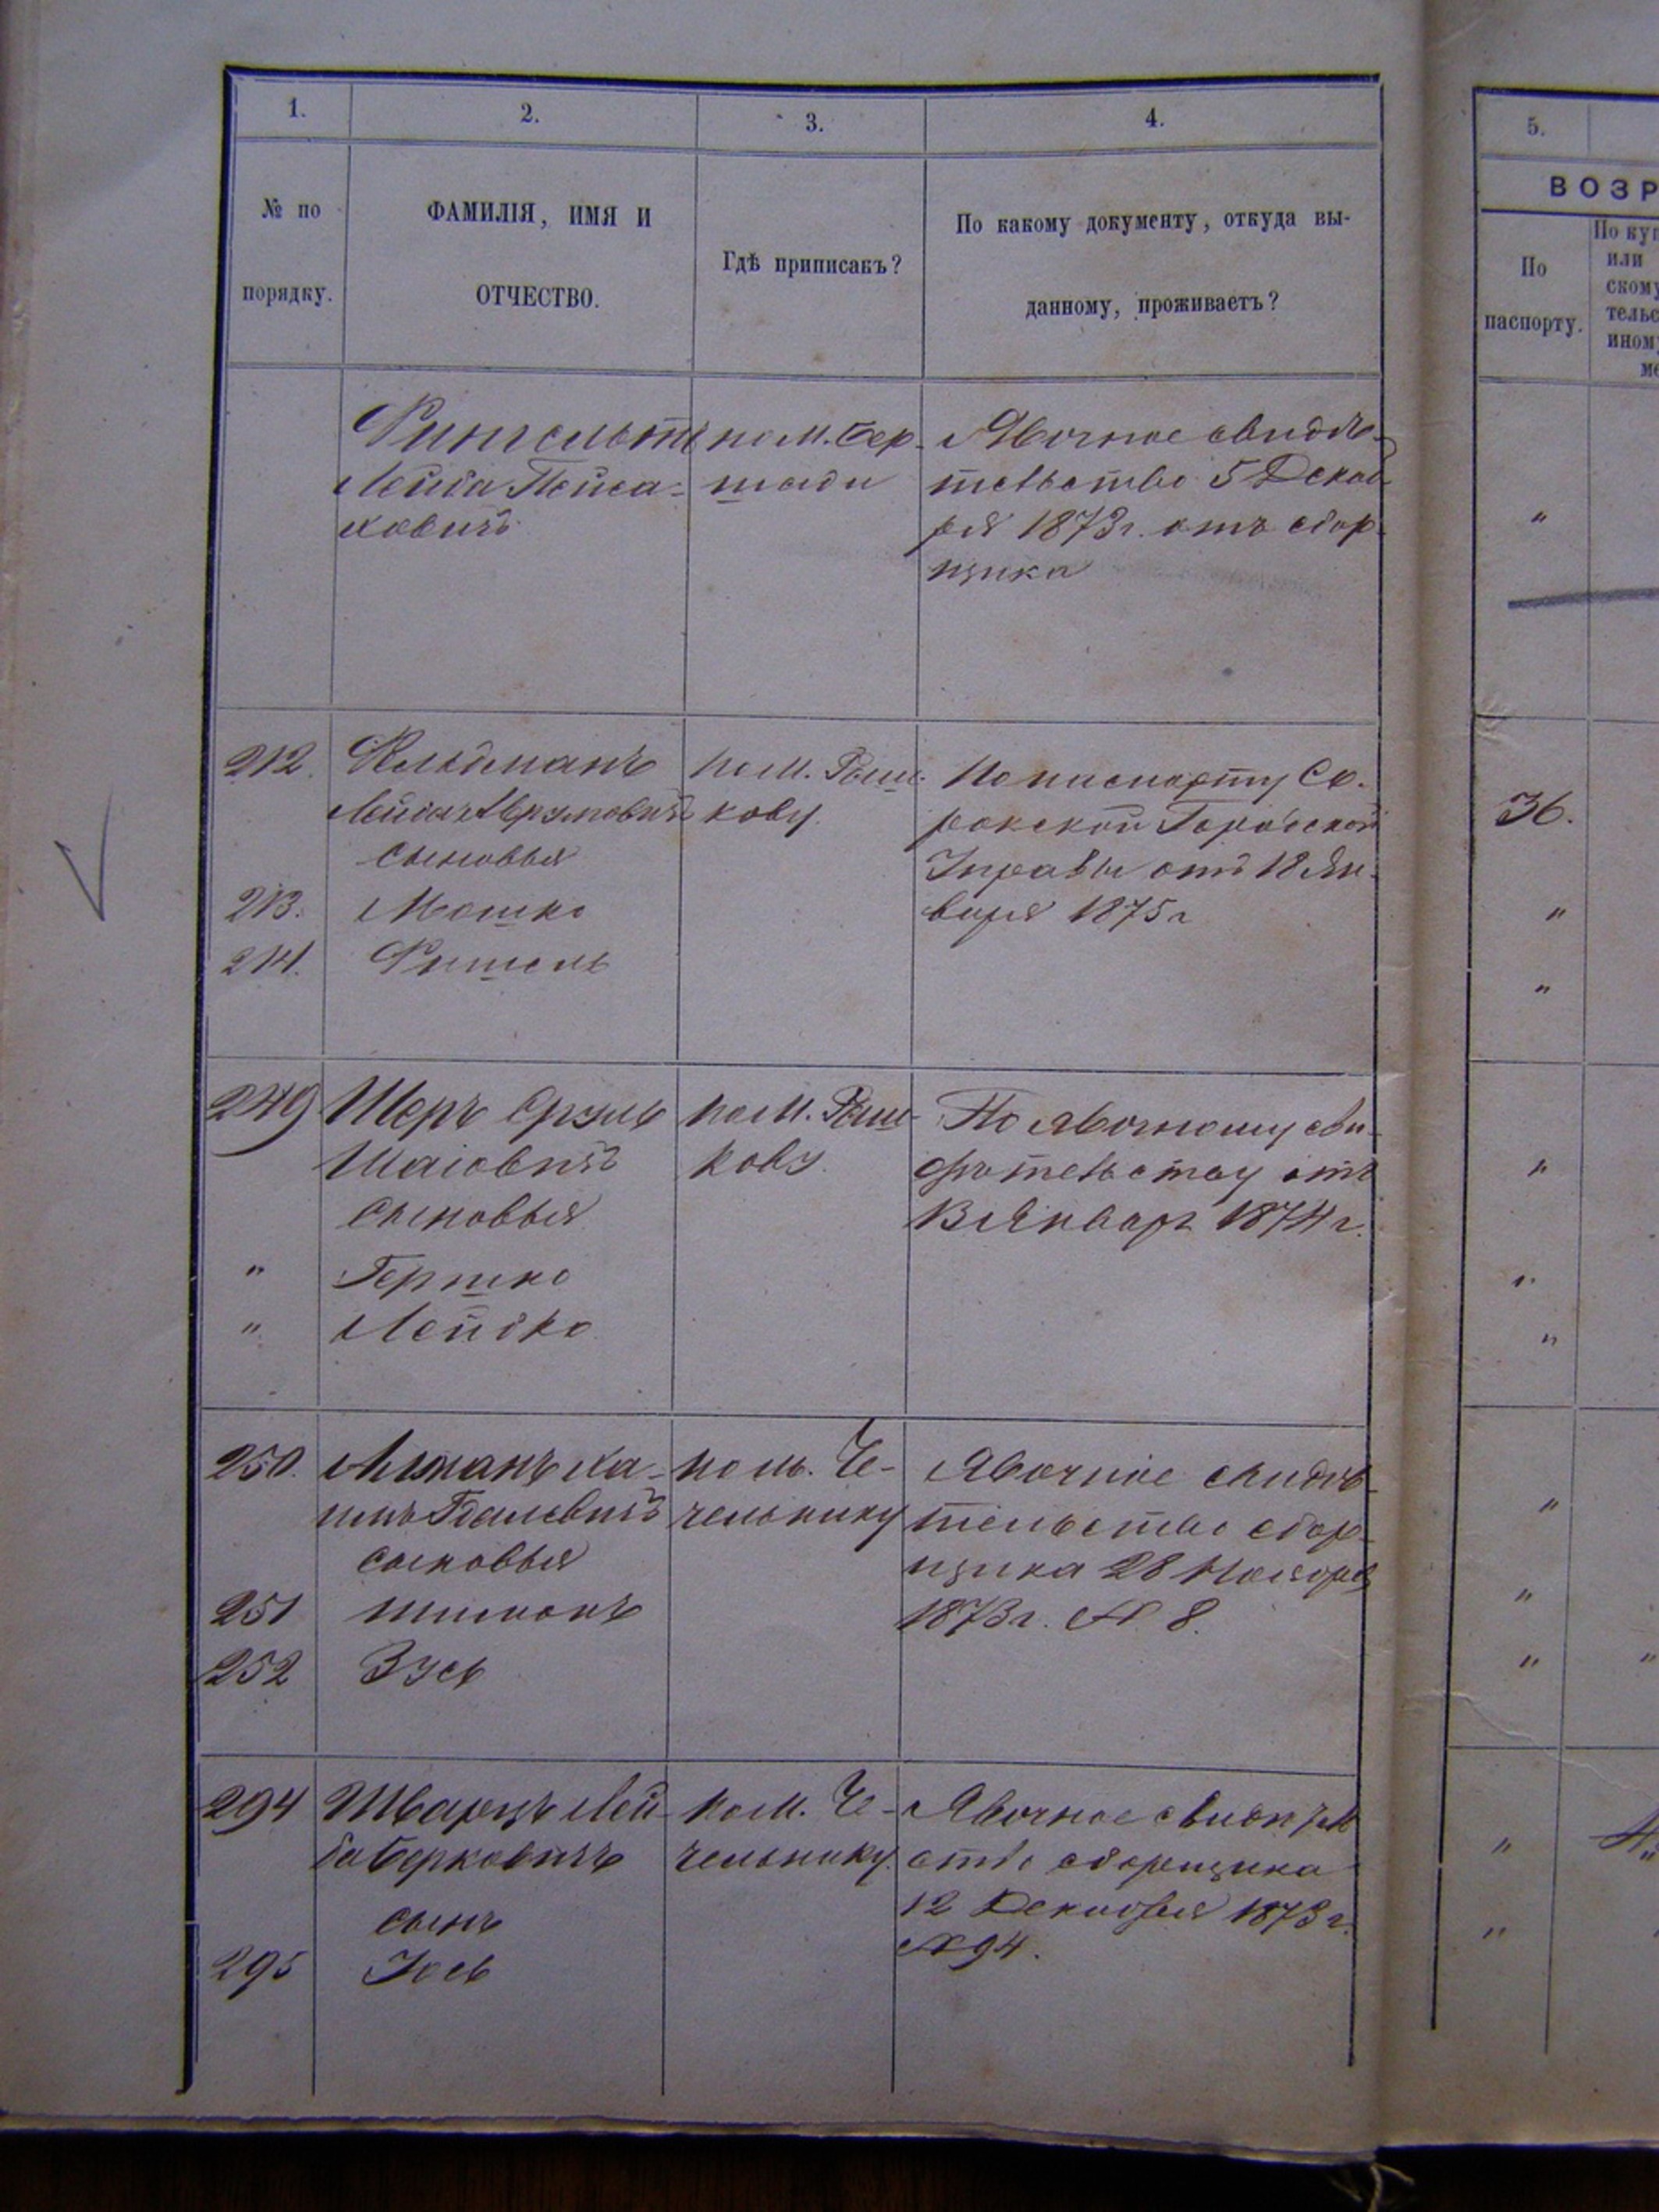 1. 2. 3. 4. 5.
№ по порядку.
ФАМИЛІЯ, ИМЯ И
ОТЧЕСТВО.
Гдѣ приписанъ?
По какому документу, откуда вы-
данному, проживаетъ?
ВОЗР
По
паспорту.
По куп
или
скому
тельс
иному
ме
Лейба Пейса-
ховичъ
по м. Бер-
шади
Явочное свидѣ-
тельство 5 Декаб-
ря 1873 г. отъ сбор-
щика
"
212.
213.
214.
Фельдманъ
Лейба Аврумовичъ
сыновья
Мошко
Фишель
по м. Раш-
кову.
По паспорту Со-
рокской Городской
Управы отъ 18 Ян-
варя 1875 г
36.
"
"
249
"
"
Шеръ Сруль
Шаіовичъ
сыновья
Гершко
Лейбко
по м. Раш-
кову.
По явочному сви-
дѣтельству отъ
13 Января 1874 г.
"
"
"
250.
251
252
сыновья
Шимонъ
Зусь
по м. Че-
чельнику
Явочное свидѣ-
тельство сбор-
щика 28 Ноября
1873 г. № 8.
"
"
"
"
294
295
Шварцъ Лей-
ба Берковичъ
сынъ
Іось
по м. Че-
чельнику.
Явочное свидѣтель
ство сборщика
12 Декабря 1873 г.
№ 94.
"
"